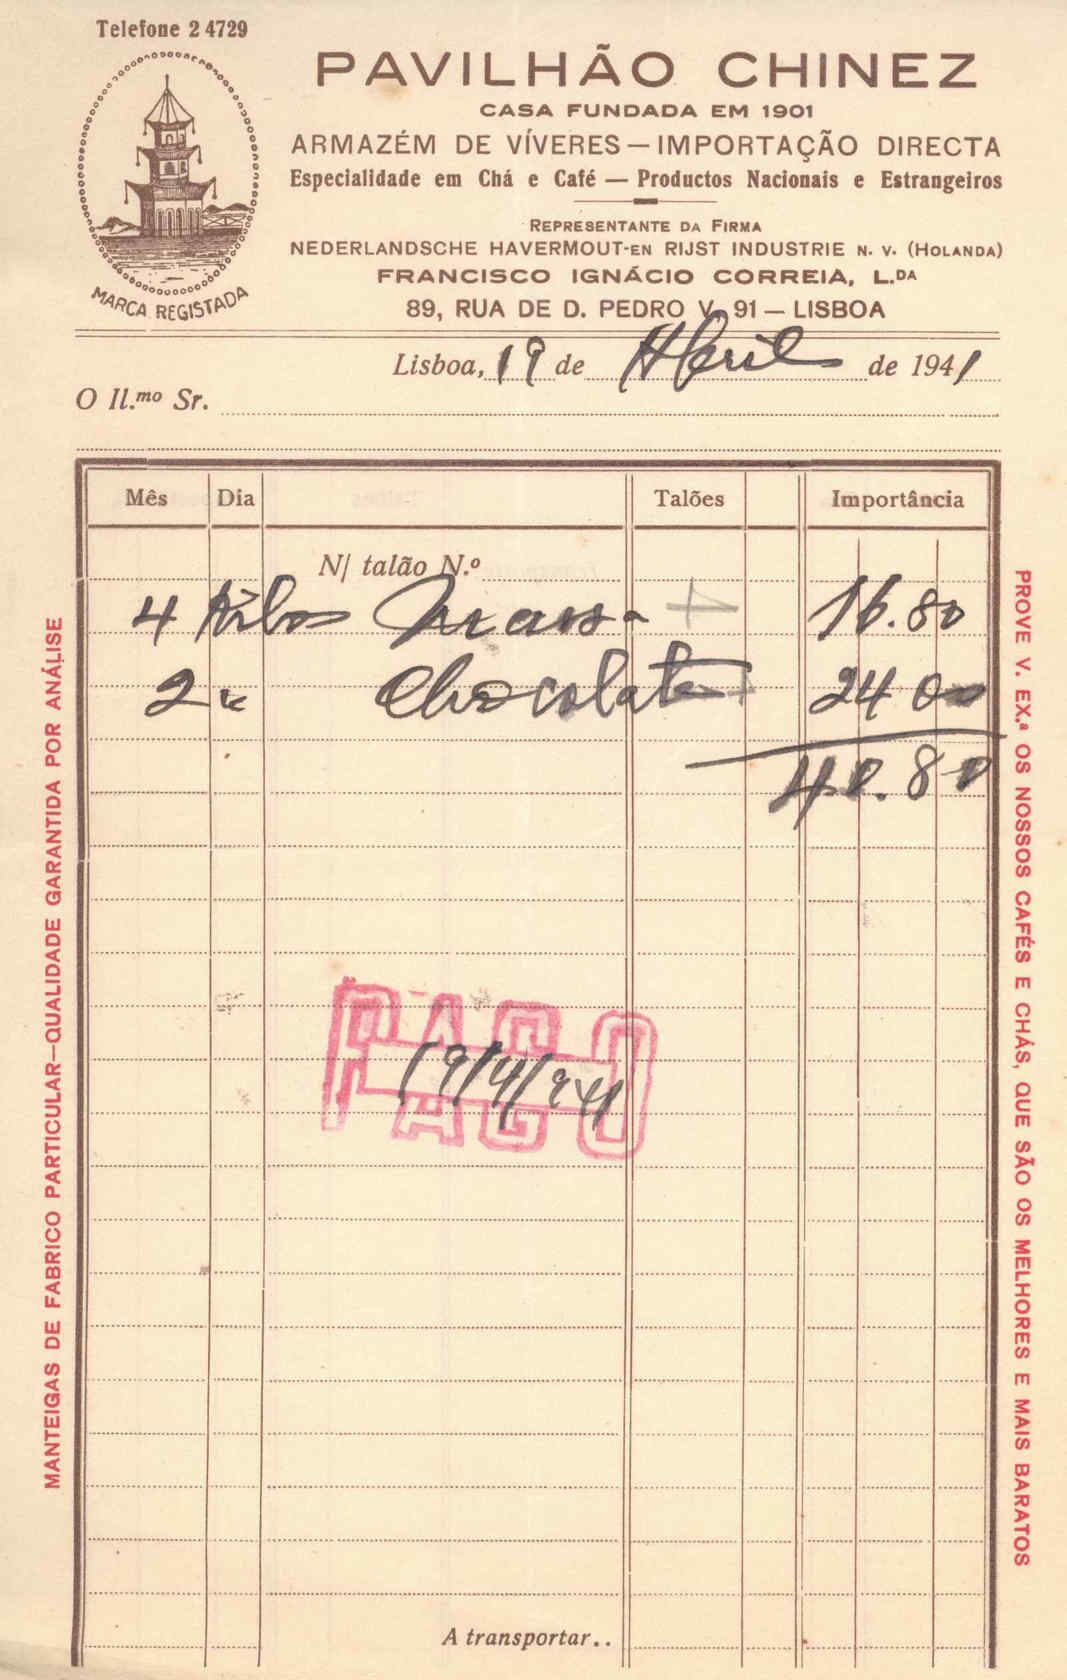 Telefone 2 4729
MARCA REGISTADA
PAVILHÃO CHINEZ
CASA FUNDADA EM 1901
ARMAZÉM DE VÍVERES — IMPORTAÇÃO DIRECTA
Especialidade em Chá e Café — Productos Nacionais e Estrangeiros
REPRESENTANTE DA FIRMA
NEDERLANDSCHE HAVERMOUT-EN RIJST INDUSTRIE N. V. (HOLANDA)
FRANCISCO IGNÁCIO CORREIA, L.DA
89, RUA DE D. PEDRO V, 91 — LISBOA
Lisboa, 19 de Abril de 1941
O Il.mo Sr.
Mês Dia Talões Importância
N/ talão N.º
4 Kilos Massa 16.80
2 " Chocolate 24 00
40.80
PAGO
19/4/941
A transportar..
MANTEIGAS DE FABRICO PARTICULAR—QUALIDADE GARANTIDA POR ANÁLISE
PROVE V. EX.ª OS NOSSOS CAFÉS E CHÁS, QUE SÃO OS MELHORES E MAIS BARATOS